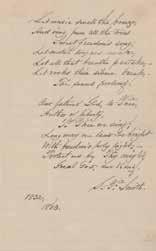 Let music swell the breeze,
And ring from all the trees
Sweet freedom's song;
Let mortal tongues awake,
Let all that breathe partake,
Let rocks their silence break,
The sound prolong.
Our fathers' God, to Thee,
Author of liberty,
To Thee we sing;
Long may our land be bright
With freedom's holy light,
Protect us by Thy might,
Great God, our King.
S. F. Smith.
1832.